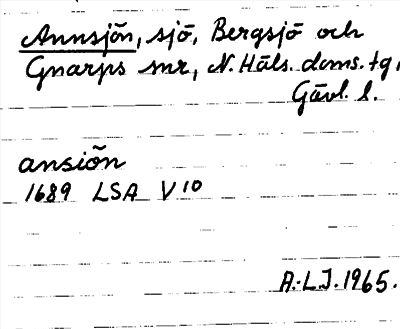 Annsjön, sjö, Bergsjö och
Gnarps snr, N. Häls. doms. tg,
Gävl. l.
ansiön
1689 LSA V 10
A.-L.J. 1965.